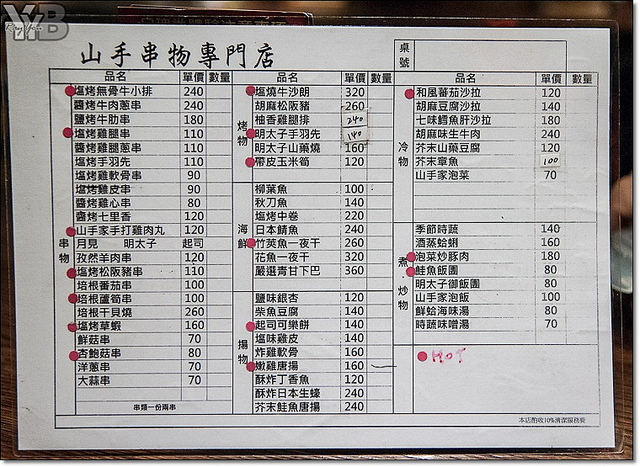 YB
山手串物專門店
桌號
品名 單價 數量
串物
塩烤無骨牛小排 240
醬烤牛肉蔥串 240
醬烤牛肋串 180
塩烤雞腿串 110
醬烤雞腿蔥串 110
塩烤手羽先 110
塩烤雞軟骨串 90
塩烤雞皮串 90
醬烤雞心串 80
醬烤七里香 120
山手家手打雞肉丸 120
月見 明太子 起司
孜然羊肉串 120
塩烤松阪豬串 110
培根番茄串 100
培根蘆筍串 100
培根干貝燒 260
塩烤草蝦 160
鮮菇串 70
杏鮑菇串 80
洋蔥串 70
大蒜串 70
串類一份兩串
品名 單價 數量
烤物
塩燒牛沙朗 320
胡麻松阪豬 260
柚香雞腿排 240
明太子手羽先 140
明太子山藥燒 160
帶皮玉米筍 120
海鮮
柳葉魚 100
秋刀魚 140
塩烤中卷 220
日本鯖魚 240
竹莢魚一夜干 260
花魚一夜干 320
嚴選青甘下巴 360
揚物
鹽味銀杏 120
柴魚豆腐 140
起司可樂餅 140
塩味雞皮 140
炸雞軟骨 160
嫩雞唐揚 160
酥炸丁香魚 120
酥炸日本生蠔 240
芥末鮭魚唐揚 240
品名 單價 數量
冷物
和風蕃茄沙拉 120
胡麻豆腐沙拉 140
七味鱈魚肝沙拉 180
胡麻味生牛肉 240
芥末山藥豆腐 120
芥末章魚 100
山手家泡菜 70
煮．炒物
季節時蔬 140
酒蒸蛤蜊 160
泡菜炒豚肉 180
鮭魚飯團 80
明太子御飯團 80
山手家泡飯 100
鮮蛤海味湯 80
時蔬味噌湯 70
HOT
本店酌收10%清潔服務費